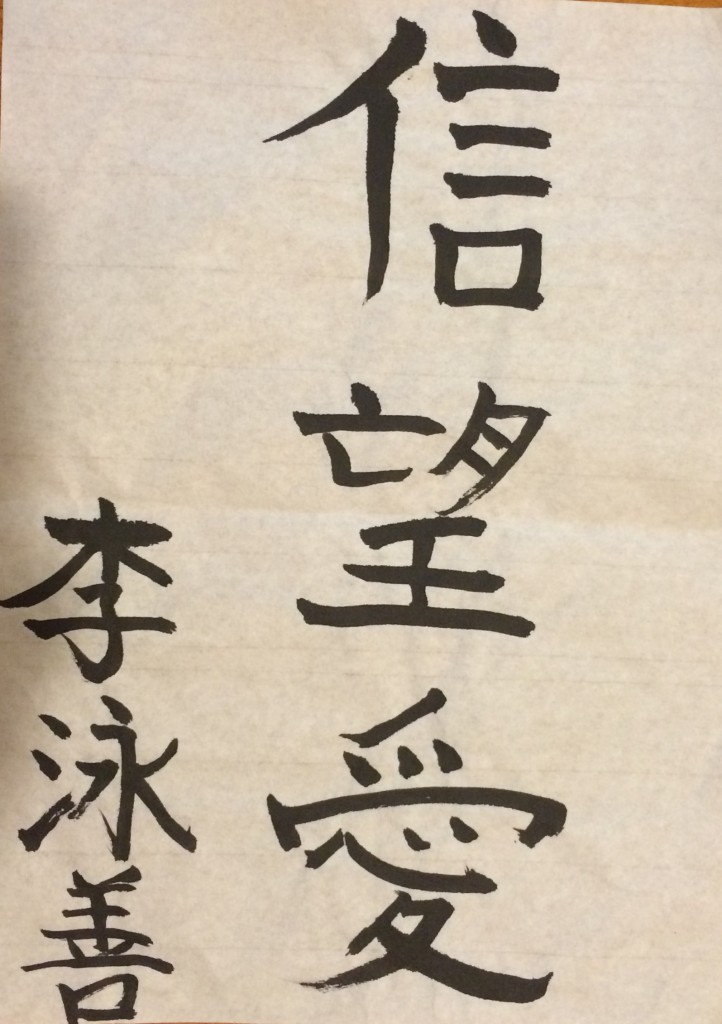 信望愛
李泳善